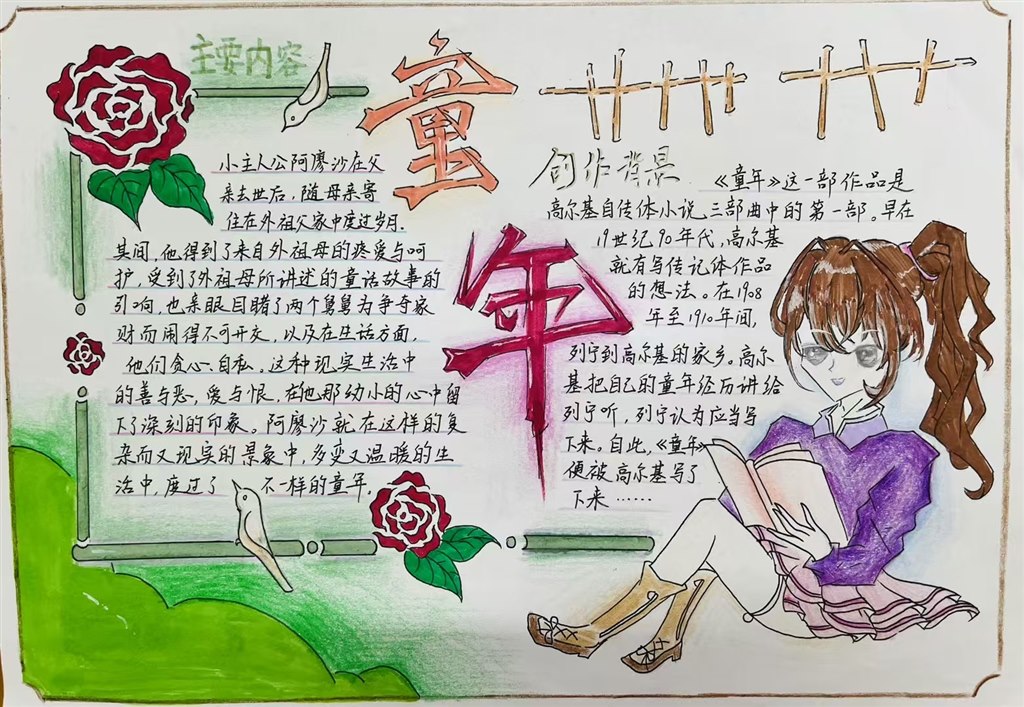 主要内容
童
年
小主人公阿廖沙在父
亲去世后，随母亲寄
住在外祖父家中度过岁月.
其间，他得到了来自外祖母的疼爱与呵
护，受到了外祖母所讲述的童话故事的
引响，也亲眼目睹了两个舅舅为争夺家
财而闹得不可开交，以及在生话方面，
他们贪心、自私。这种现实生活中
的善与恶，爱与恨，在他那幼小的心中留
下了深刻的印象。阿廖沙就在这样的复
杂而又现实的景象中，多变又温暖的生
活中，度过了 不一样的童年.
创作背景
《童年》这一部作品是
高尔基自传体小说三部曲中的第一部。早在
19世纪90年代，高尔基
就有写传记体作品
的想法。在1908
年至1910年间，
列宁到高尔基的家乡。高尔
基把自己的童年经历讲给
列宁听，列宁认为应当写
下来。自此，《童年》
便被高尔基写了
下来……